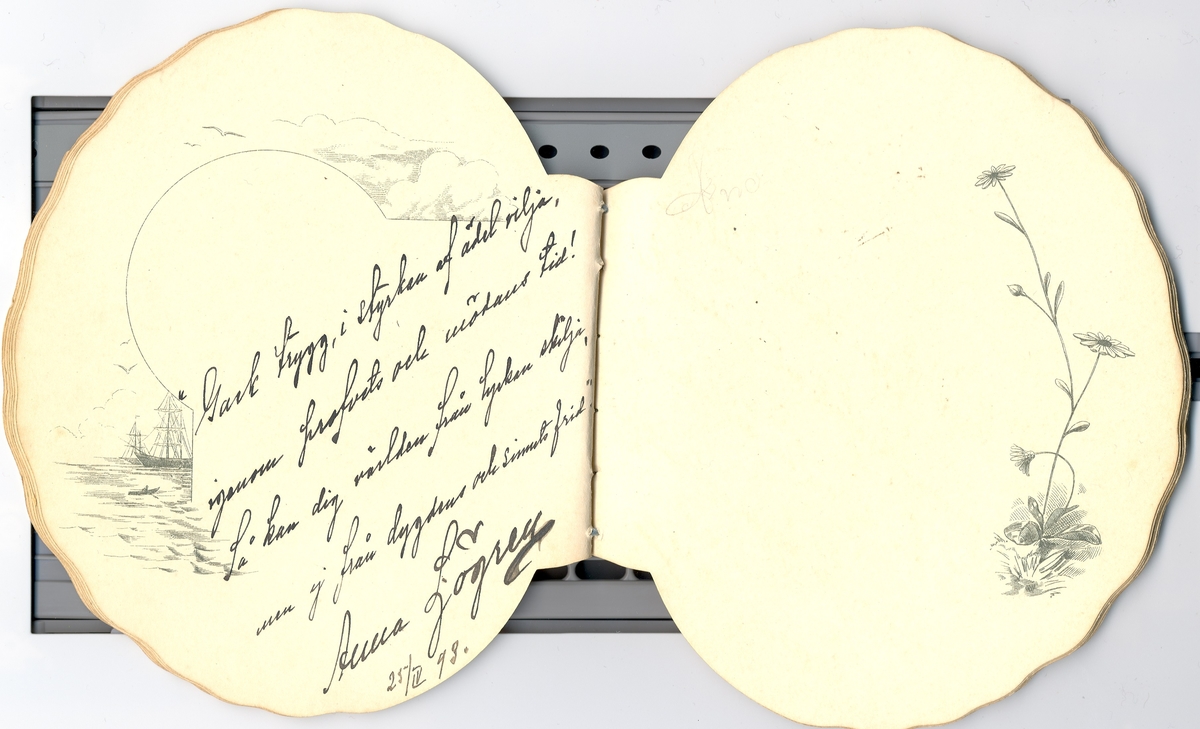 "Gack trygg, i styrkan af ädel vilja,
igenom profvets och mödans tid!
Så kan dig världen från lyckan skilja,
men ej från dygdens och sinnets frid."
Anna
25/IV 93.